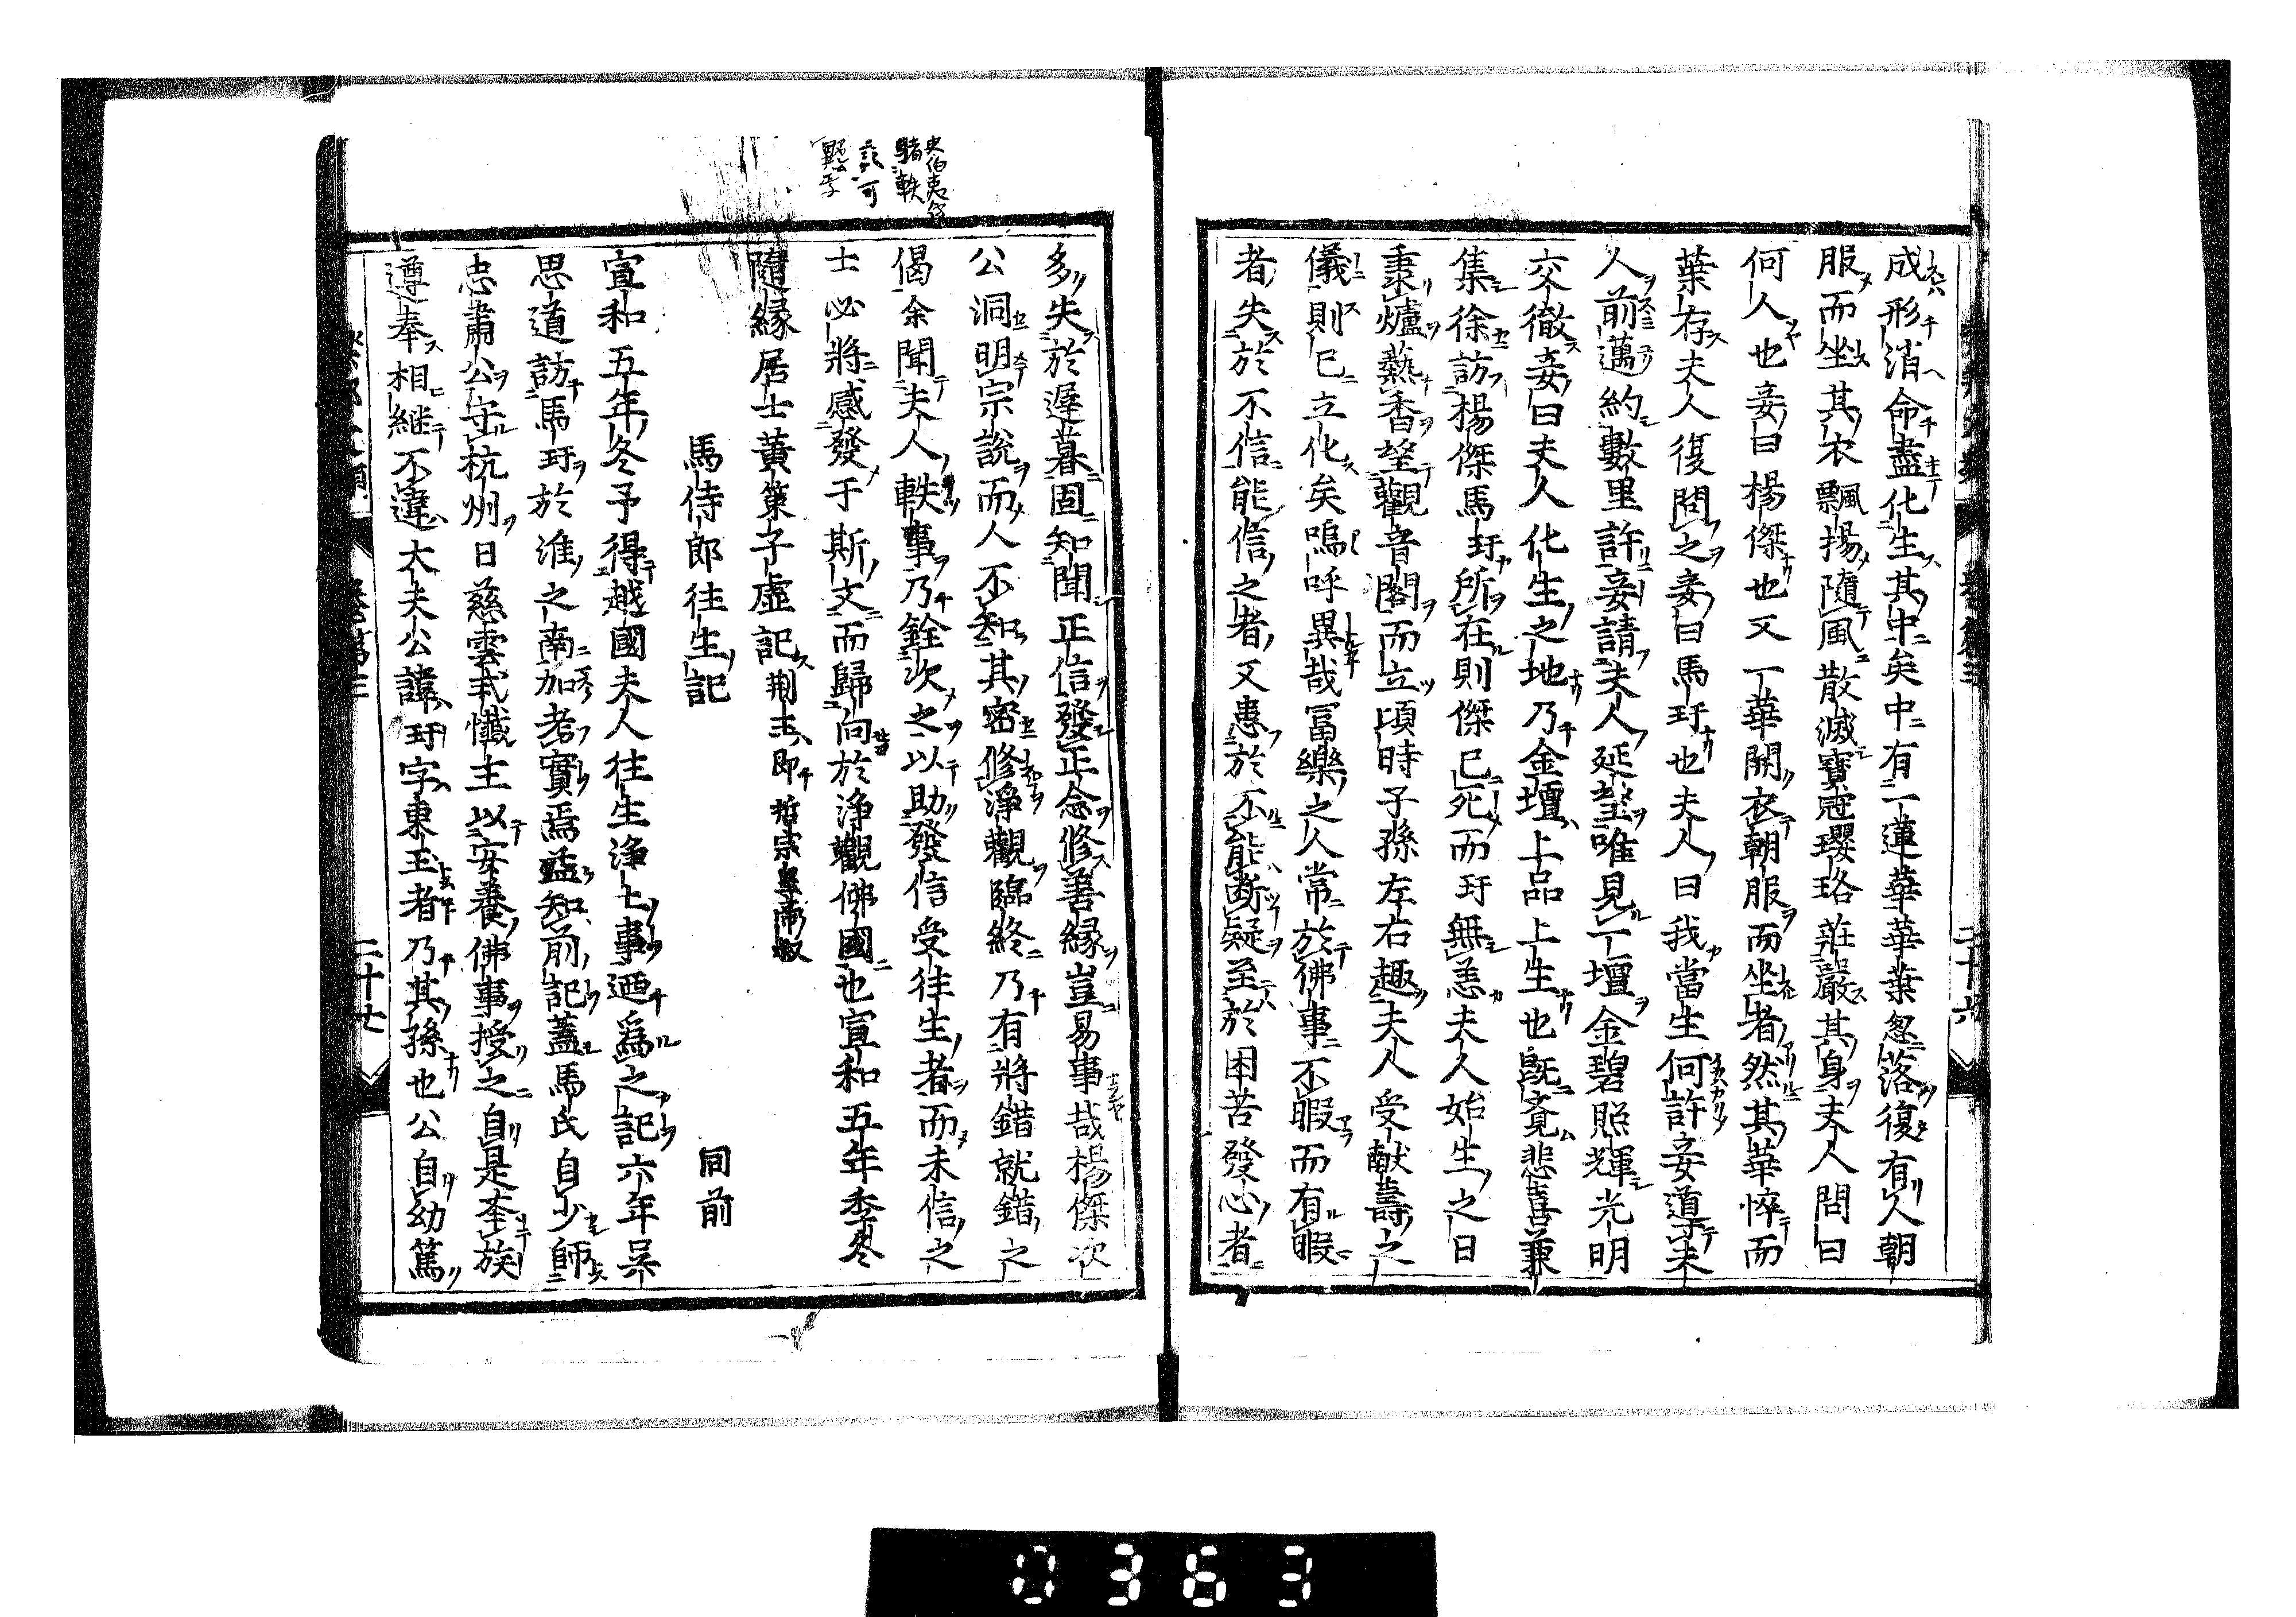 成形消命盡化生其中矣中有一蓮華華葉忽落復有人朝
服而坐其衣飄揚隨風散滅寶冠瓔珞莊嚴其身夫人問曰
何人也妾曰楊傑也又一華開衣朝服而坐者然其華悴而
葉存夫人復問之妾曰馬玗也夫人曰我當生何許妾道夫
人前邁約數里許妾請夫人延望唯見一壇金碧照輝光明
交徹妾曰夫人化生之地乃金壇上品上生也既覺悲喜兼
集徐訪楊傑馬玗所在則傑已死而玗無恙夫人始生之日
秉爐爇香望觀音閣而立頃時子孫左右趣夫人受獻壽之
儀則已立化矣嗚呼異哉冨樂之人常於佛事不暇而有暇
者失於不信能信之者又患於不能断疑至於困苦發心者
二十六
史伯夷
驥軼
可
多失於遅暮固知聞正信發正念修善縁豈易事哉楊傑次
公洞明宗説而人不知其密修淨觀臨終乃有將錯就錯之
偈余聞夫人軼事乃銓次之以助發信受往生者而未信之
士必將感發于斯文而歸向於淨觀佛國也宣和五年季冬
隨縁居士黃策子虛記 荆王即哲宗皇帝叔
馬侍郎往生記 同前
宣和五年冬予得越國夫人往生淨土事廼爲之記六年吳
思道訪馬玗於淮之南加考實焉益知前記蓋馬氏自少師
忠肅公守杭州日慈雲式懺主以安養佛事授之自是奎族
遵奉相継不違大夫公諱玗字東玉者乃其孫也公自幼篤
卷第三
二十七
0363